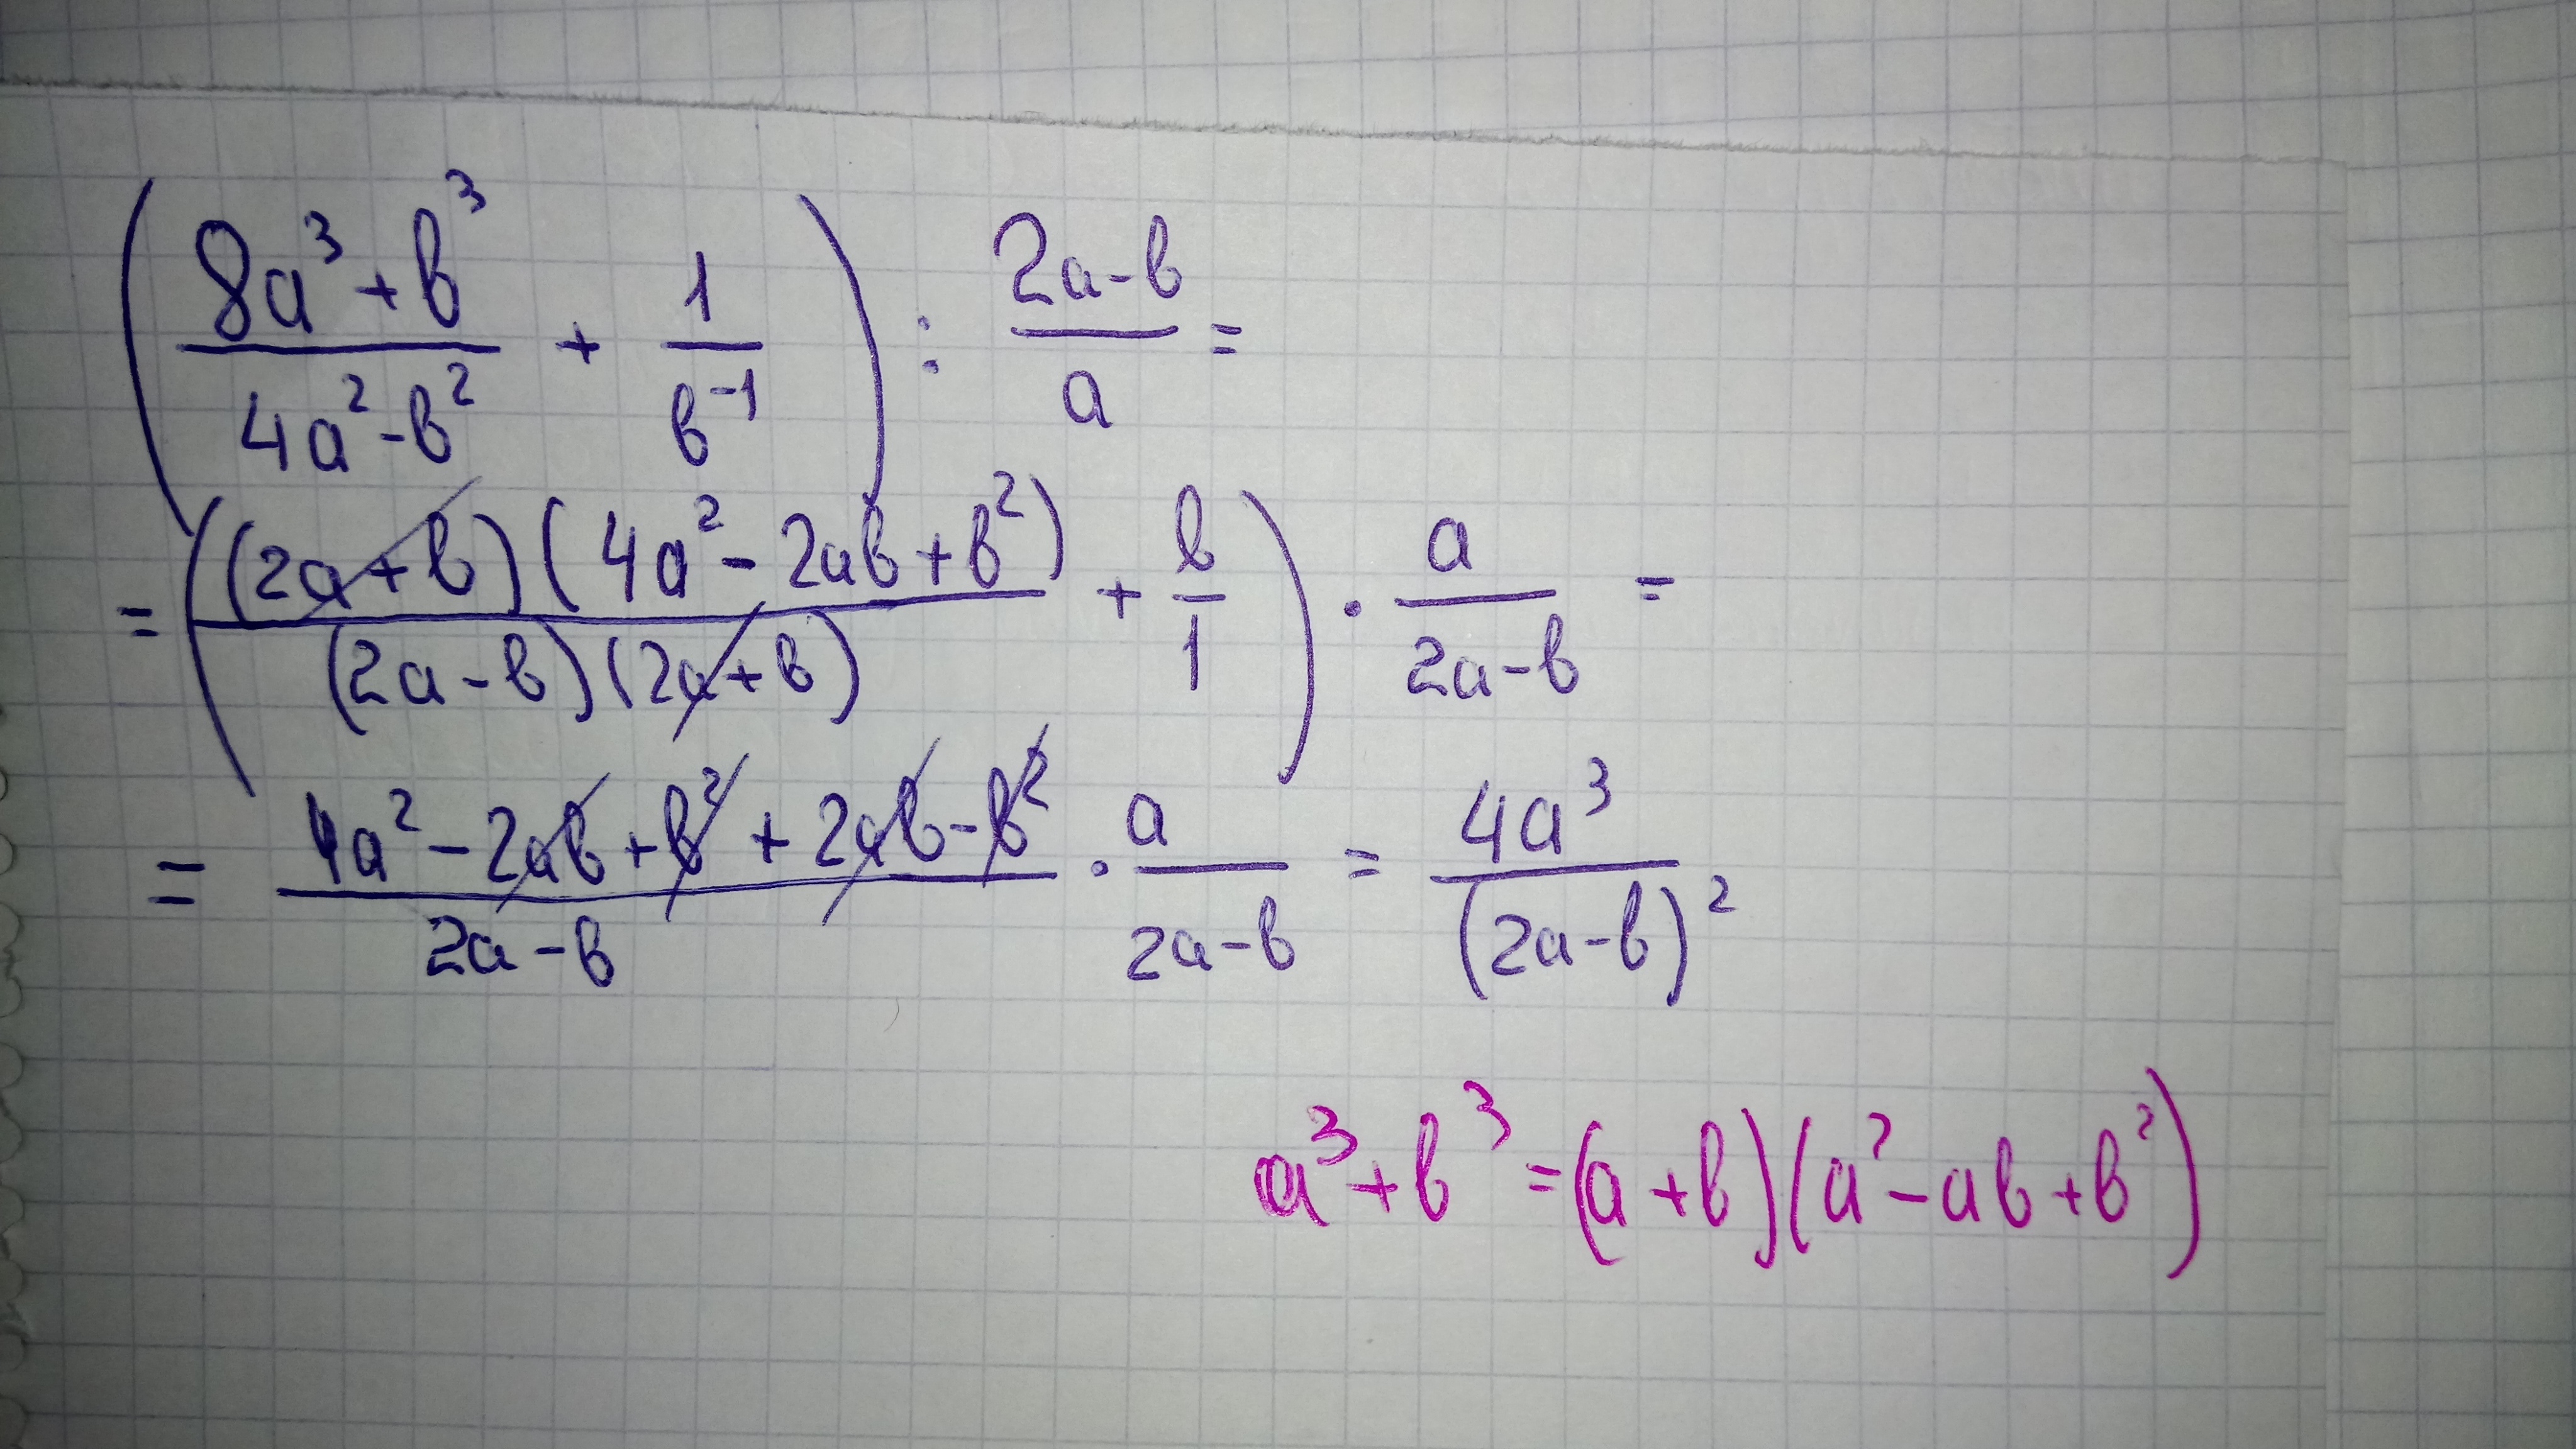 (8a³+b³/4a²-b² + 1/b⁻¹) : 2a-b/a =
= ((2a+b)(4a²-2ab+b²)/(2a-b)(2a+b) + b/1) · a/2a-b =
= 4a²-2ab+b²+2ab-b²/2a-b · a/2a-b = 4a³/(2a-b)²
a³+b³=(a+b)(a²-ab+b²)